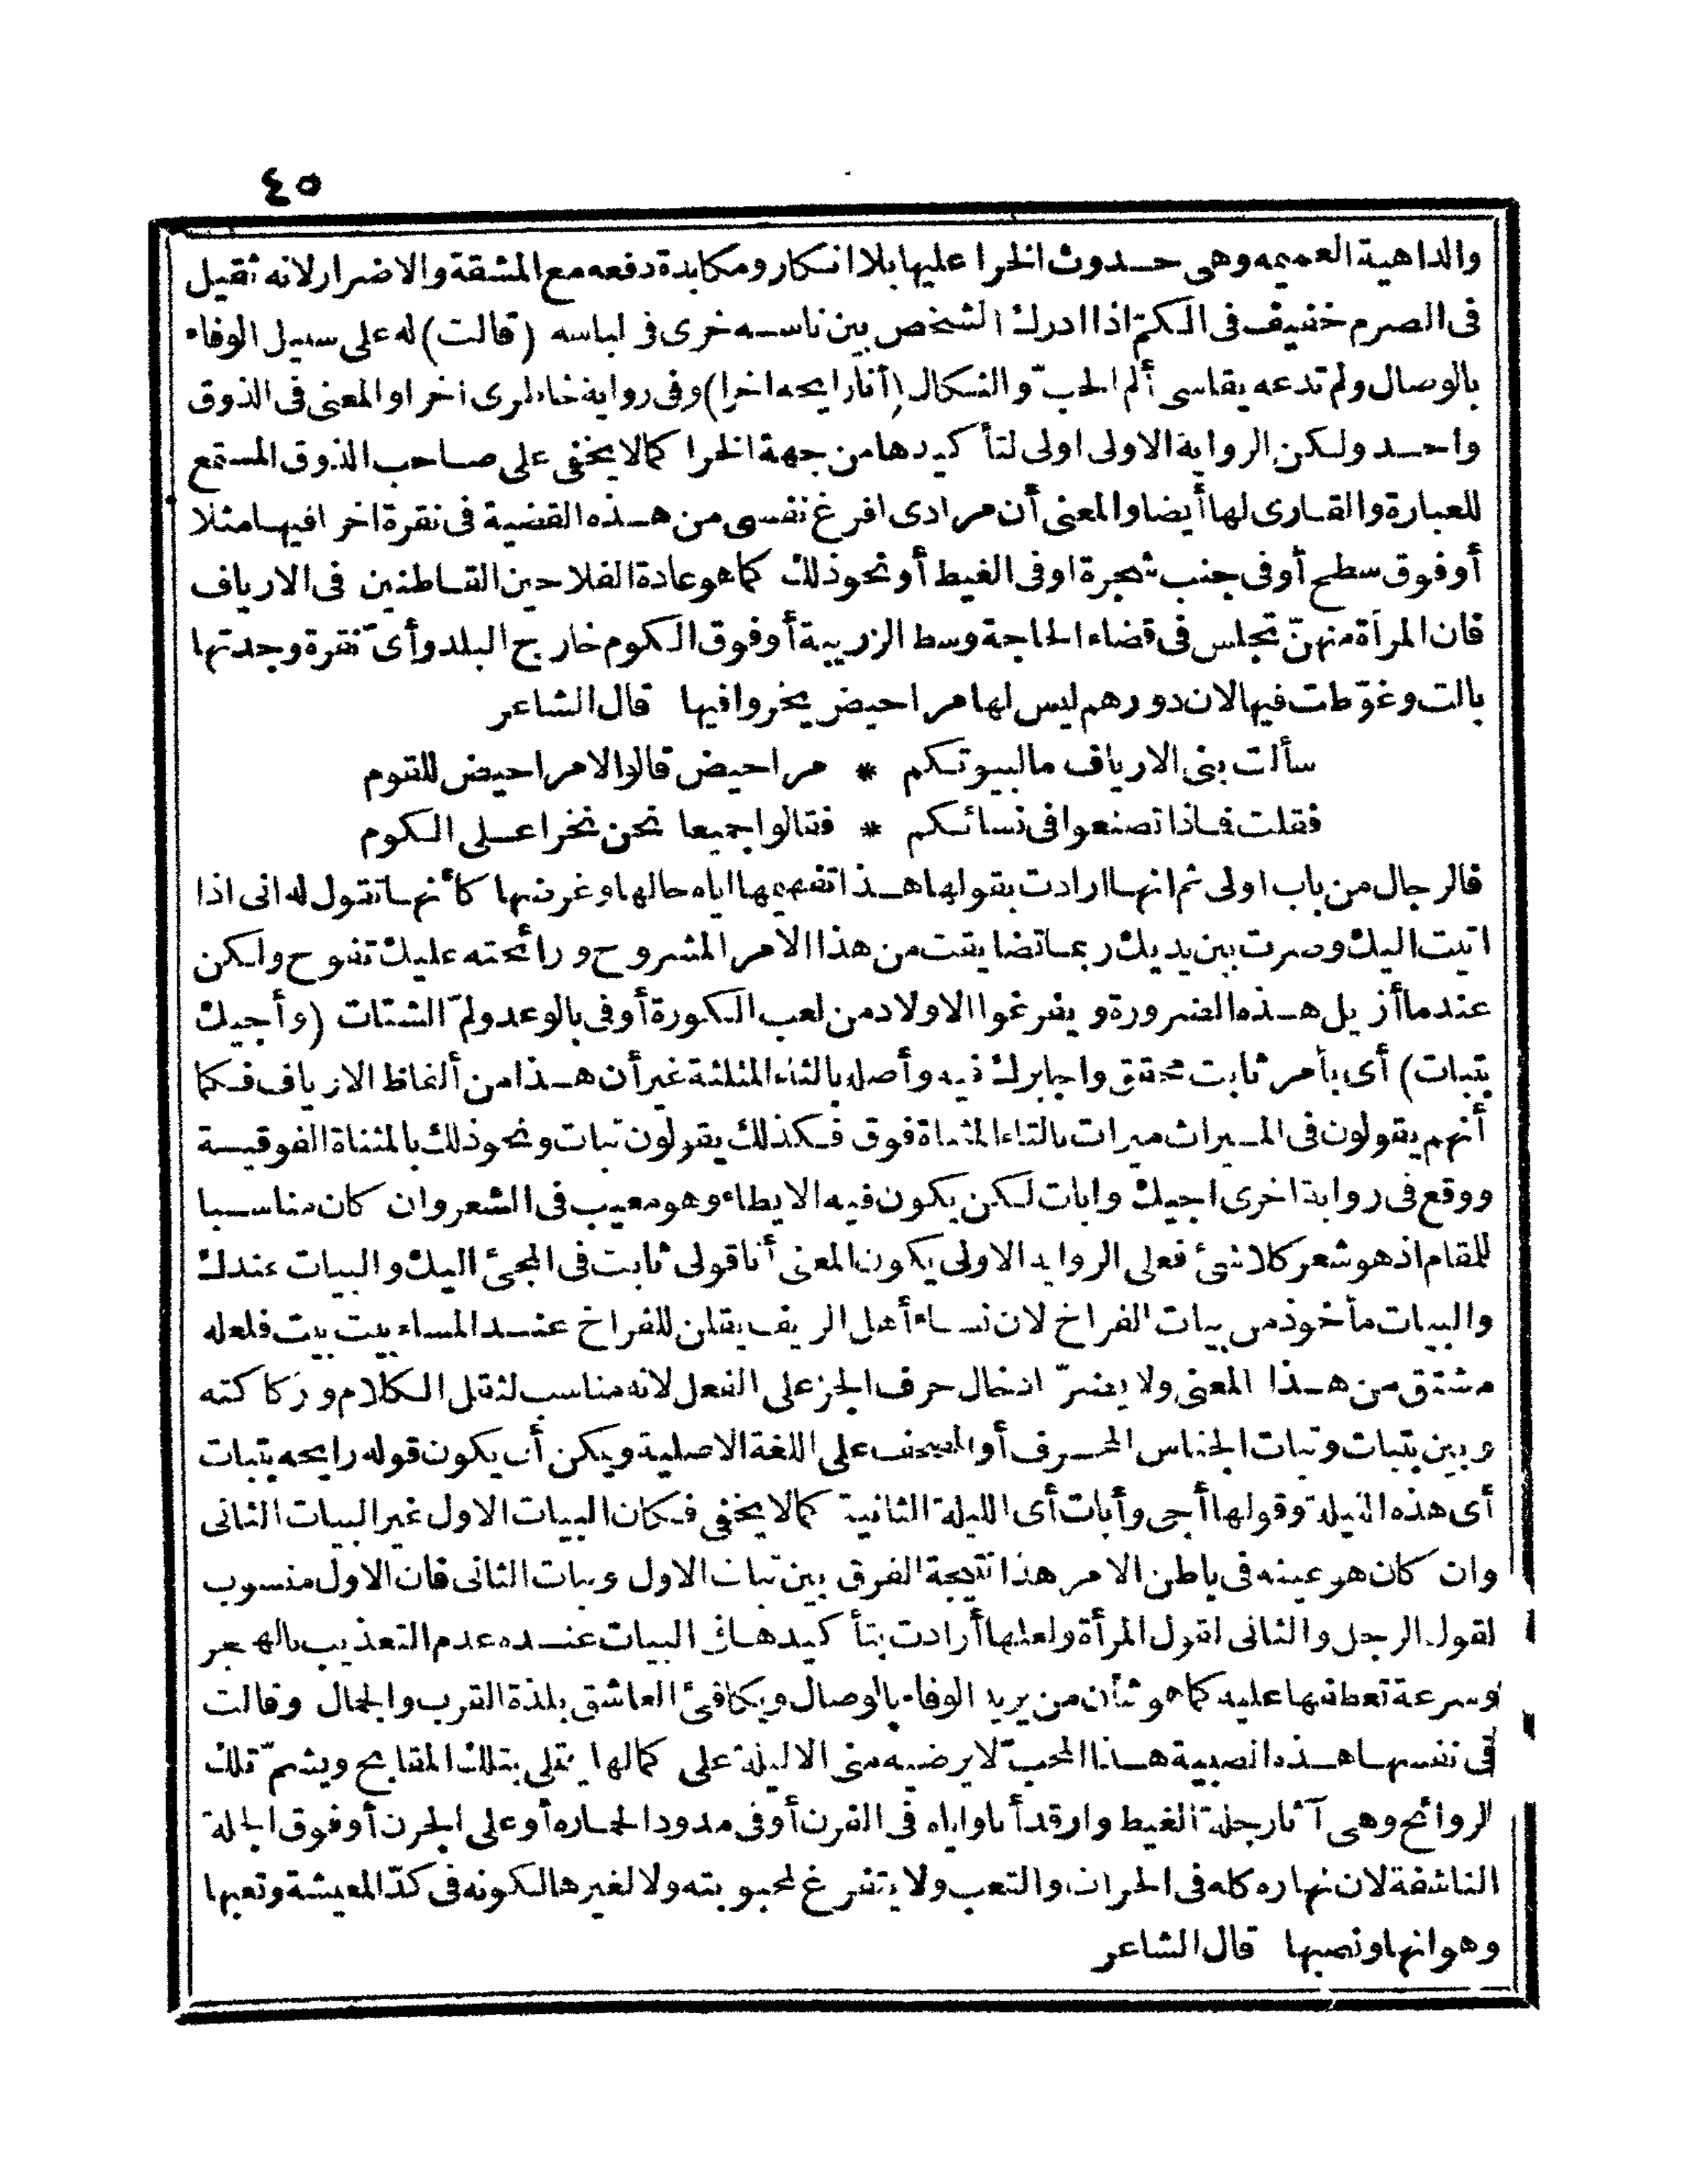 ٤٥
والداهية العميمه وهى حدوث الخرا عليها بلا انكار ومكابدة دفعه مع المشقة والاضرار لانه ثقيل
فى الصرم خفيف فى الكم اذا ادرك الشخص بين ناسه خرى فى لباسه (قالت) له على سبيل الوفاء
بالوصال ولم تدعه يقاسى ألم الحبّ والنكال (أنا رايحه اخرا) وفى رواية خاطرى اخرا والمعنى فى الذوق
واحد ولكن الرواية الاولى اولى لتأكيدها من جهة الخرا كمالا يخفى على صاحب الذوق المستمع
للعبارة والقارى لها أيضا والمعنى أن مرادى افرغ نفسى من هذه القضية فى نقرة اخرا فيها مثلا
أوفوق سطح أوفى جنب شجرة اوفى الغيط أونحو ذلك كماهو عادة الفلاحين القاطنين فى الارياف
فان المرأة منهنّ تجلس فى قضاء الحاجة وسط الزريبة أوفوق الكوم خارج البلد وأىّ نقرة وجدتها
بالت وغوّطت فيها لان دورهم ليس لها مراحيض يخروا فيها قال الشاعر
سألت بنى الارياف مالبيوتكم * مراحيض قالوا لا مراحيض للقوم
فقلت فماذا تصنعوا فى نسائكم * فقالوا جميعا نحن نخرا على الكوم
فالرجال من باب اولى ثم انها ارادت بقولها هذا تفهيمها اياه حالها وغرضها كأنها تقول له انى اذا
اتيت اليك وصرت بين يديك ربما تضايقت من هذا الأمر المشروح ورائحته عليك تفوح ولكن
عندما أزيل هذه الضرورة ويفرغوا الاولاد من لعب الكورة أوفى بالوعد ولمّ الشتات (وأجيك
بتبات) أى بأمر ثابت محقق واجابرك فيه وأصله بالثاء المثلثة غير أن هذا من ألفاظ الارياف فكما
أنهم يقولون فى الميراث ميرات بالتاء المثناة فوق فكذلك يقولون تبات ونحو ذلك بالمثناة الفوقية
ووقع فى رواية اخرى اجيك وابات لكن يكون فيه الايطاء وهو معيب فى الشعر وان كان مناسبا
للمقام اذ هو شعر كلا شئ فعلى الروايه الاولى يكون المعنى أنا قولى ثابت فى المجئ اليك والبيات عندك
والبيات مأخوذ من بيات الفراخ لان نساء أهل الريف يقلن للفراخ عند المساء بيت بيت فلعله
مشتق من هذا المعنى ولا يضرّ ادخال حرف الجز على الفعل لانه مناسب لثقل الكلام وركاكته
وبين بتبات وتبات الجناس المحرف أو المصحف على اللغة الاصلية ويكن أن يكون قوله رايحه بتبات
أى هذه الليلة وقولها أجى وأبات أى الليلة الثانية كمالا يخفى فكان البيات الاول غير البيات الثانى
وان كان هو عينه فى باطن الامر هذا نتيجة الفرق بين تبات الاول وبيات الثانى فان الاول منسوب
لقول الرجل والثانى لقول المرأة ولعلها أرادت بتأكيدها فى البيات عنده عدم التعذيب بالهجر
وسرعة تعطفها عليه كماهو شأن من يريد الوفاء بالوصال ويكافئ العاشق بلذة القرب والجمال وقالت
فى نفسها هذه نصيبة هذا المحبّ لا يرضيه منى الا ليلة على كمالها يتملى بتلك المقابح ويشمّ تلك
الروائح وهى آثار جلة الغيط وارقد أنا واياه فى الفرن أوفى مدود الحماره أو على الجرن أوفوق الجلة
الناشفة لان نهاره كله فى الحراث والتعب ولا يتفرغ لمحبوبته ولا لغيرها لكونه فى كدّ المعيشة وتعبها
وهوانها ونصبها قال الشاعر